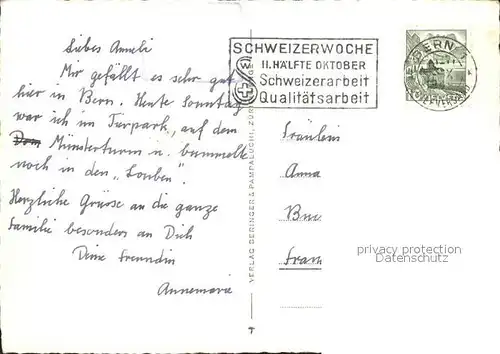 Liebes Anneli
Mir gefällt es sehr gut
hier in Bern. Heute Sonntag
war ich im Tierpark, auf dem
Dom Münsterturm u. bummelte
noch in den „Lauben".
Herzliche Grüsse an die ganze
Familie besonders an Dich
Deine Freundin
Annemarie
SCHWEIZERWOCHE
II. HÄLFTE OKTOBER
Schweizerarbeit
Qualitätsarbeit
BERN
BRIEFVERSAND
VERLAG BERINGER & PAMPALUCHI, ZÜR
Fräulein
Anna
Fram
privacy protection
www.ansichtskarten-center.de